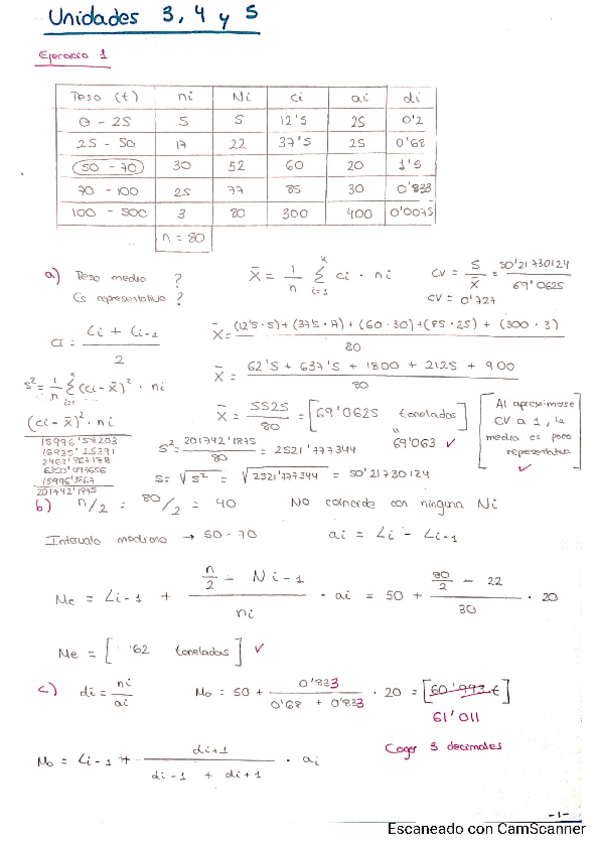 Unidades 3, 4 y 5
Ejercicio 1
Peso (t) ni Ni ci ai di
0 - 25 5 5 12'5 25 0'2
25 - 50 17 22 37'5 25 0'68
50 - 70 30 52 60 20 1'5
70 - 100 25 77 85 30 0'833
100 - 500 3 80 300 400 0'0075
n = 80
a) Peso medio ?
Es representativo ?
X̄ = 1/n Σ ci · ni
k
i=1
CV = S/X̄ = 50'21730124/69'0625
CV = 0'727
ci = Li + Li-1 / 2
X̄ = (12'5 · 5) + (37'5 · 17) + (60 · 30) + (85 · 25) + (300 · 3) / 80
S² = 1/n Σ (ci - x̄)² · ni
X̄ = 62'5 + 637'5 + 1800 + 2125 + 900 / 80
(ci - x̄)² · ni
X̄ = 5525/80 = [69'0625 toneladas]
69'063 ✓
[Al aproximarse CV a 1, la media es poco representativa] ✓
201742'1875
S² = 201742'1875/80 = 2521'777344
S = √S² = √2521'777344 = 50'21730124
b) n/2 = 80/2 = 40 No coincide con ninguna Ni
Intervalo mediano → 50 - 70 ai = Li - Li-1
Me = Li-1 + (n/2 - Ni-1)/ni · ai = 50 + (80/2 - 22)/30 · 20
Me = [ '62 toneladas] ✓
c) di = ni/ai Mo = 50 + 0'833/(0'68 + 0'833) · 20 = [60'993 t]
61'011
Coger 3 decimales
Mo = Li-1 + di+1/(di-1 + di+1) · ai
-1-
Escaneado con CamScanner